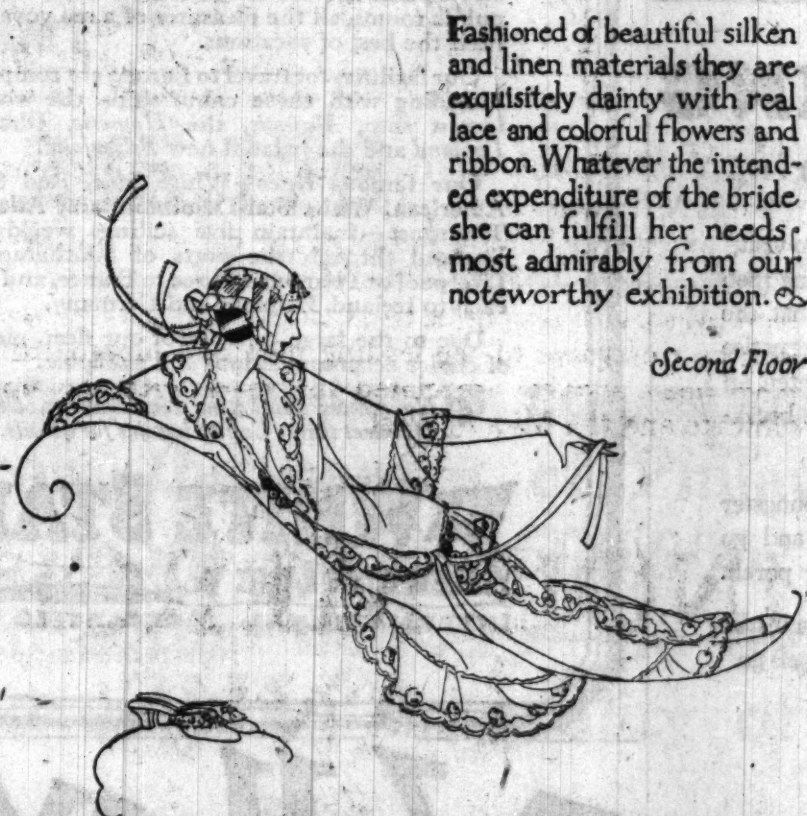 Fashioned of beautiful silken
and linen materials they are
exquisitely dainty with real
lace and colorful flowers and
ribbon. Whatever the intend-
ed expenditure of the bride
she can fulfill her needs
most admirably from our
noteworthy exhibition.
Second Floor